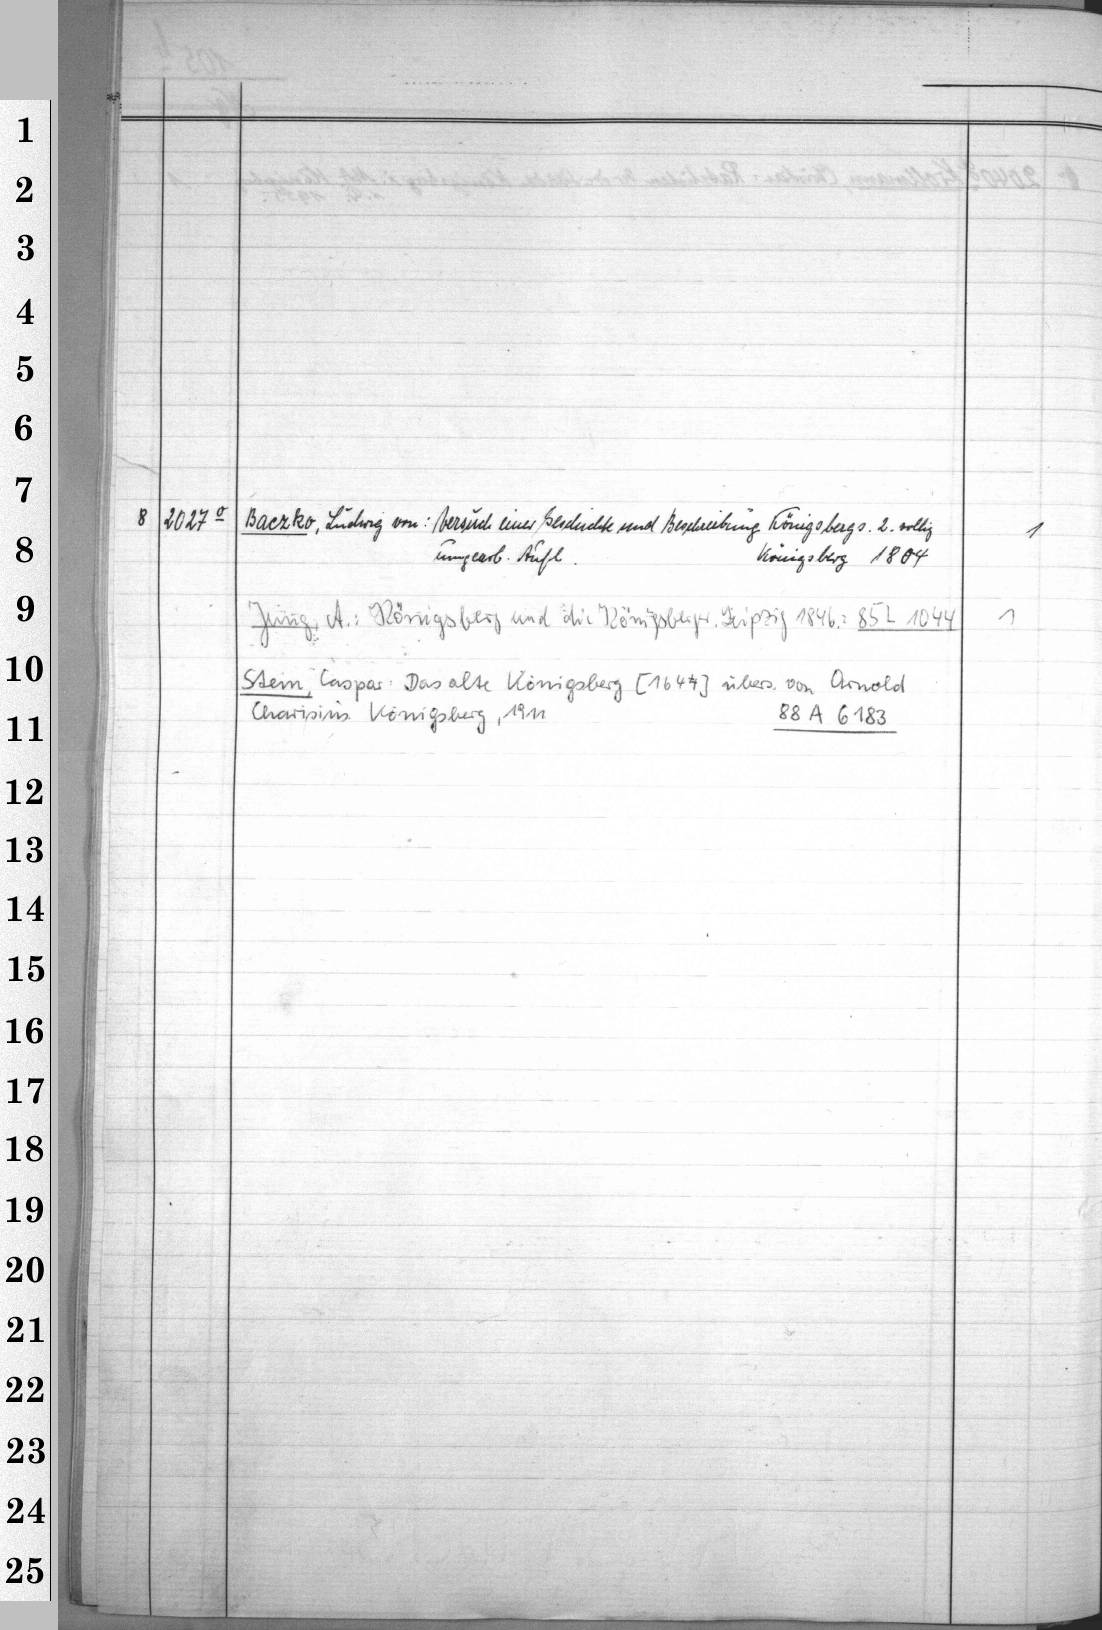 1
2
3
4
5
6
7
8 2027 º Baczko, Ludwig von: Versuch einer Geschichte und Beschreibung Königsbergs. 2. völlig 1
8
umgearb. Aufl. Königsberg 1804
9
Jung, A.: Königsberg und die Königsberger. Leipzig 1846.: 85 L 1044 1
10
Stein, Caspar: Das alte Königsberg [1644] übers. von Arnold
11
Charisius. Königsberg, 1911 88 A 6183
12
13
14
15
16
17
18
19
20
21
22
23
24
25